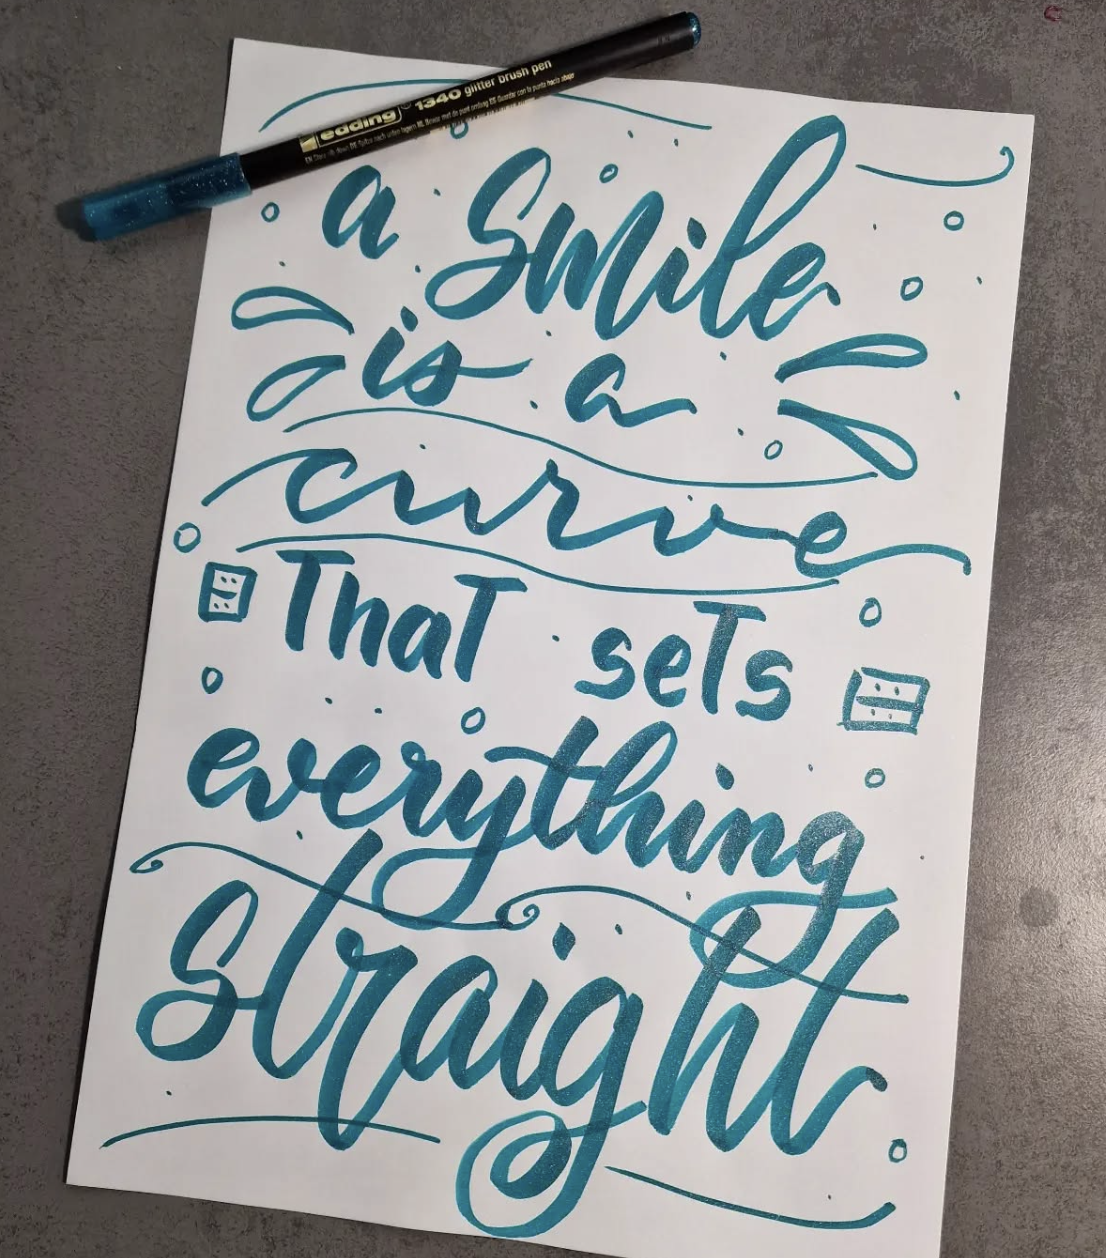 edding 1340 glitter brush pen
a smile
is a
curve
ThaT seTs
everything
straight